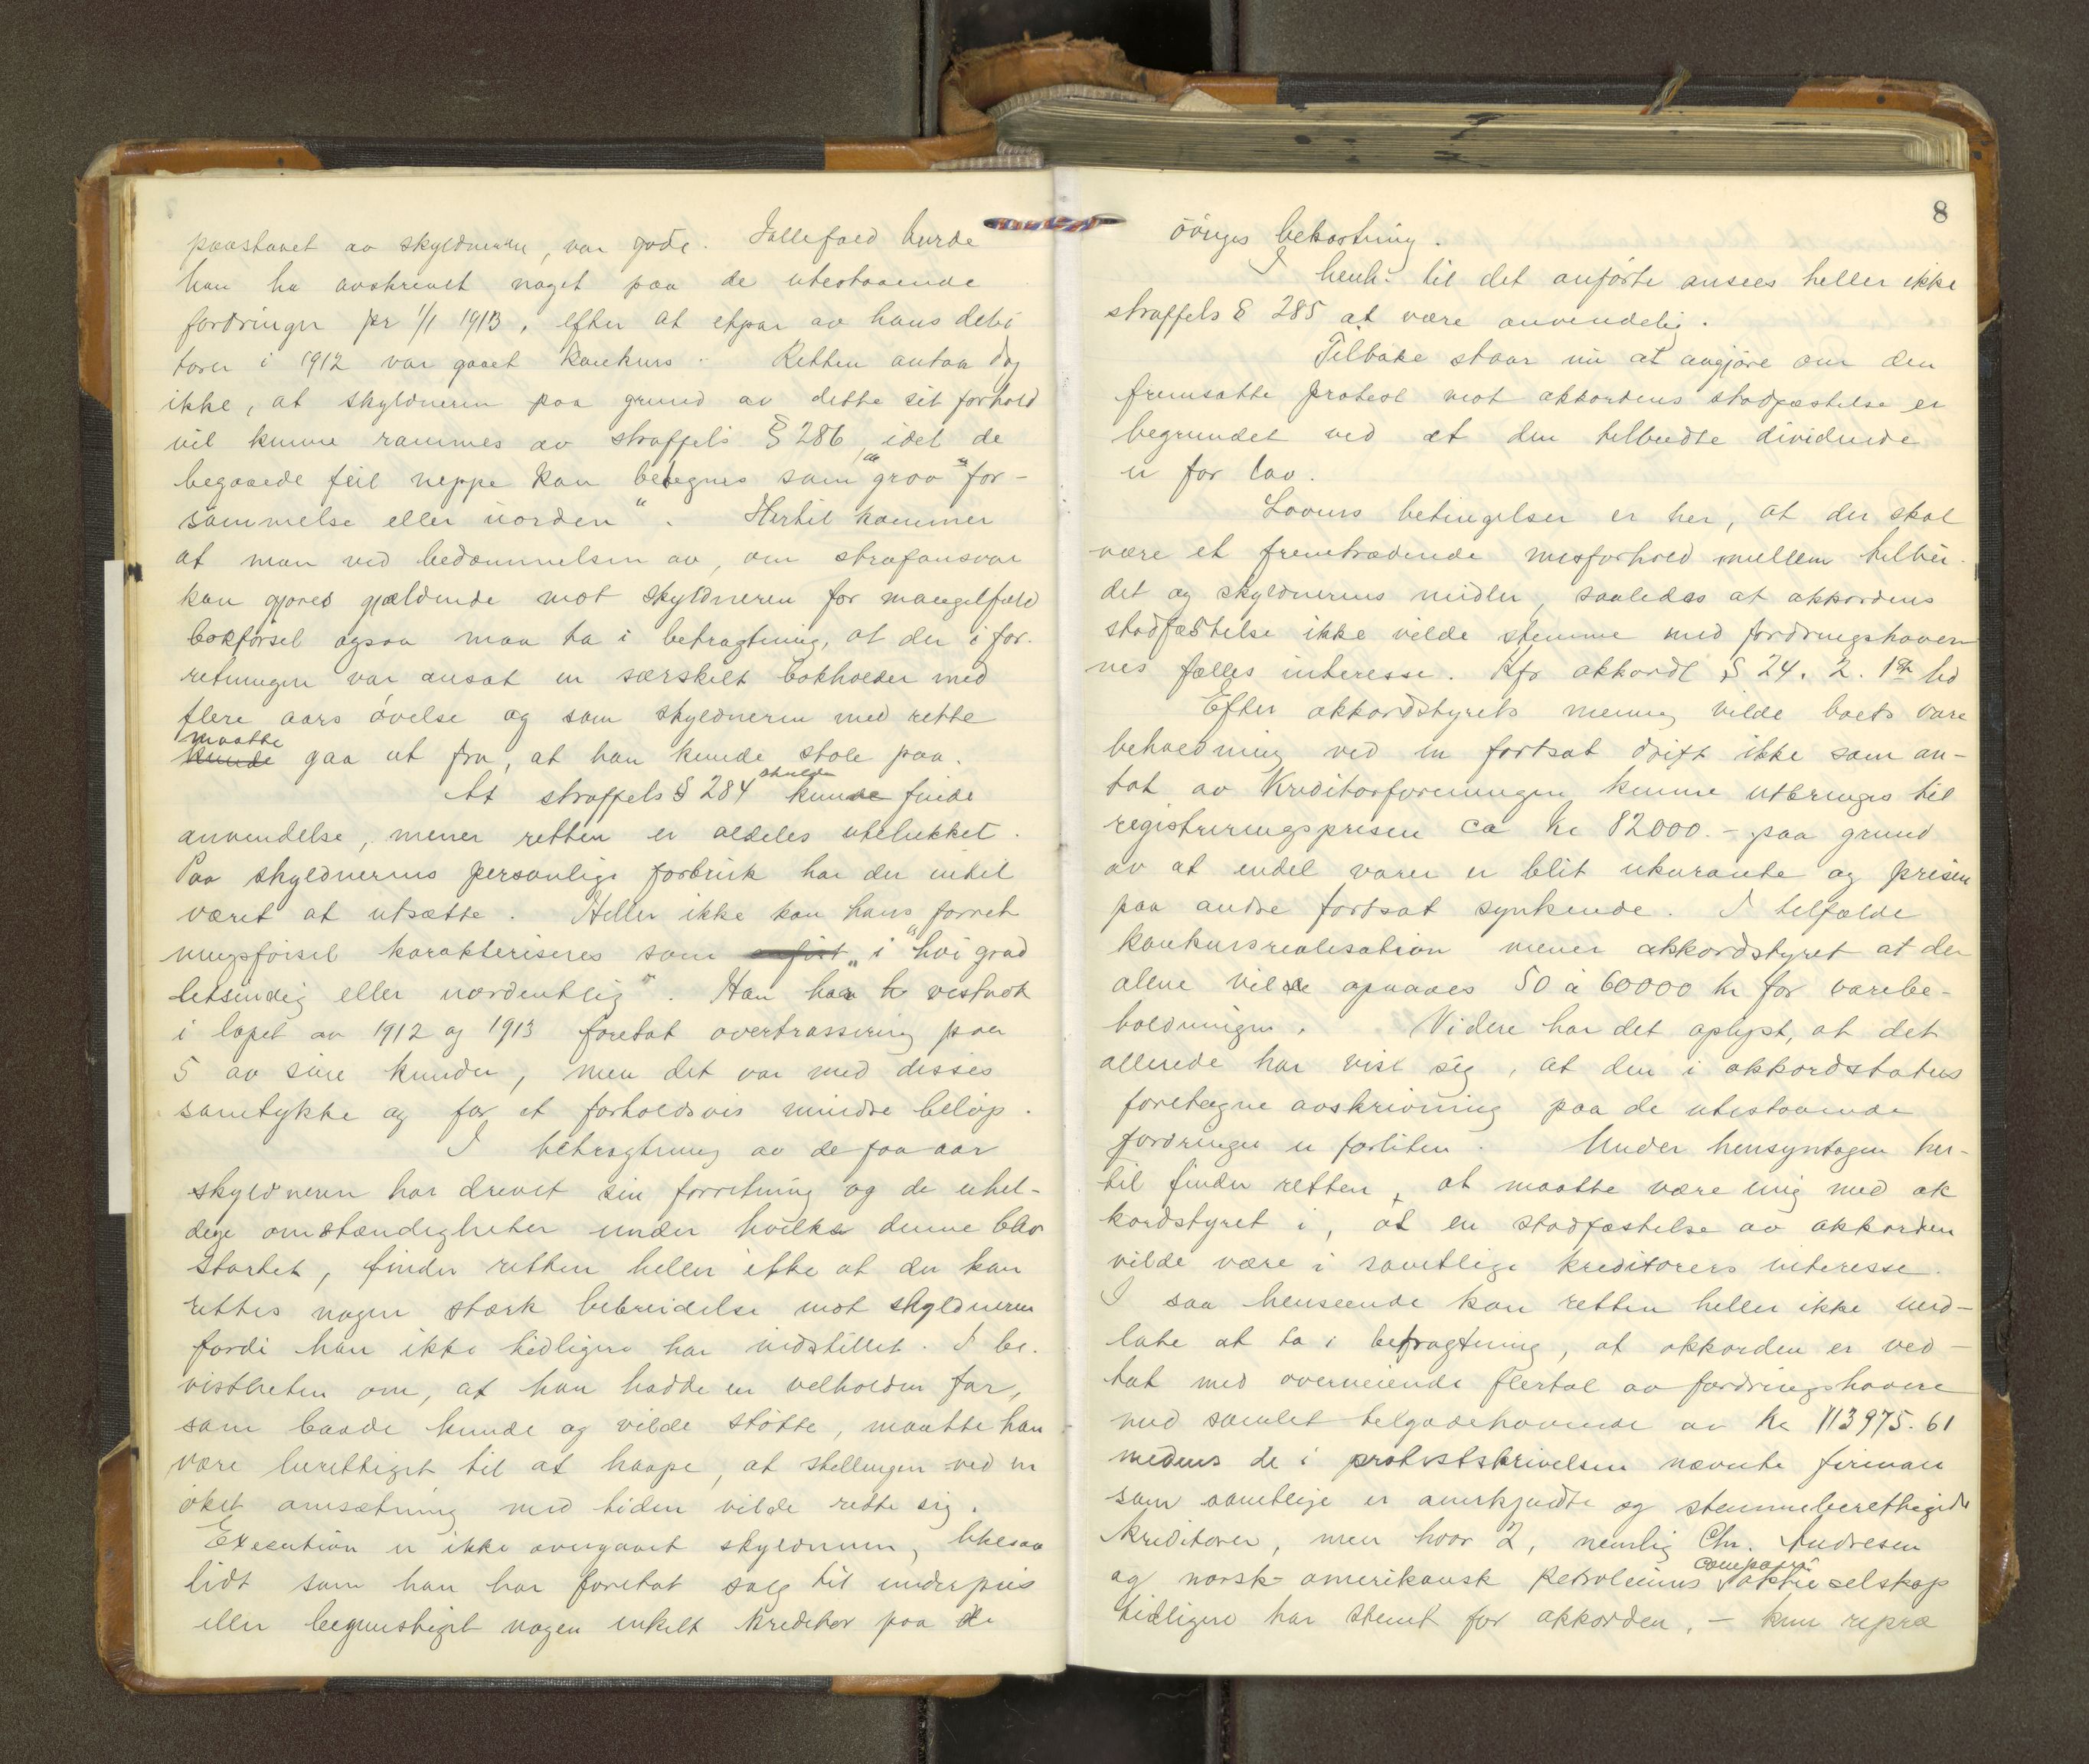 paastaaet av skyldneren, var gode. Ialfefald burde
han ha avskrevet noget paa de utestaaende
fordringer pr 1/1 1913, efter at etpar av hans debi
torer i 1912 var gaaet konkurs. Retten antar dog
ikke, at skyldneren paa grund av dette sit forhold
vil kunne rammes av straffels § 286, idet de
begaaede feil neppe kan betegnes som "grov" for-
sömmelse eller uorden". Hertil kommer
at man ved bedömmelsen av, om strafansvar
kan gjöres gjældende mot skyldneren for mangelfuld
bokförsel ogsaa maa ta i betragtning, at der i for-
retningen var ansat en særskilt bokholder med
flere aars övelse og som skyldneren med rette
maatte
kunde gaa ut fra, at han kunde stole paa.
At straffels § 284 skulde kunde finde
anvendelse, mener retten er aldeles utelukket.
Paa skyldnerens personlige forbruk har der intet
været at utsætte. Heller ikke kan hans forret
ningsförsel karakteriseres som i "höi grad
letsindig eller uordentlig". Han har vistnok
i löpet av 1912 og 1913 foretat overtrassering paa
5 av sine kunder, men det var med disses
samtykke og for et forholdsvis mindre belöp.
I betragtning av de faa aar
skyldneren har drevet sin forretning og de uhel-
dige omstændigheter under hvilke denne blev
startet, finder retten heller ikke at der kan
rettes nogen stærk bebreidelse mot skyldneren
fordi han ikke tidligere har indstillet. I be-
vistheten om, at han hadde en velholden far,
som baade kunde og vilde stötte, maatte han
være berettiget til at haape, at stillingen ved en
öket omsætning med tiden vilde rette sig.
Execution er ikke overgaaet skyldneren, likesaa
lidt som han har foretat salg til underpris
eller begunstiget nogen enkelt kreditor paa de
8
övriges bekostning.
I henh. til det anförte ansees heller ikke
straffels § 285 at være anvendelig.
Tilbake staar nu at avgjöre om den
fremsatte protest mot akkordens stadfæstelse er
begrundet ved at den tilbudte dividende
er for lav.
Lovens betingelser er her, at der skal
være et fremtrædende misforhold mellem tilbu-
det og skyldnerens midler, saaledes at akkordens
stadfæstelse ikke vilde stemme med fordringshaver
nes fælles interesse. Kfr akkordl § 24. 2. 1ste led
Efter akkordstyrets mening vilde boets vare
beholdning ved en fortsat drift ikke som an-
tat av Kreditorforeningen kunne utbringes til
registreringsprisen ca kr 82000.- paa grund
av at endel varer er blit ukurante og prisen
paa andre fortsat synkende. I tilfælde
konkursrealisation mener akkordstyret at der
alene vilde opnaaes 50 à 60000 kr for varebe-
holdningen. Videre har det oplyst, at det
allerede har vist sig, at den i akkordstatus
foretagne avskrivning paa de utestaaende
fordringer er forliten. Under hensyntagen her-
til finder retten, at maatte være enig med ak
kordstyret i, at en stadfæstelse av akkorden
vilde være i samtlige kreditorers interesse.
I saa henseende kan retten heller ikke und-
late at ta i betragtning, at akkorden er ved-
tat med overveiende flertal av fordringshavere
med samlet tilgodehavende av kr 113975.61
medens de i protestskrivelsen nævnte firmaer
som samtlige er anerkjendte og stemmeberettigede
kreditorer, men hvor 2, nemlig Chr. Andresen
og norsk-amerikansk Petroleums compagni aktieselskap
tidligere har stemt for akkorden, - kun repræ